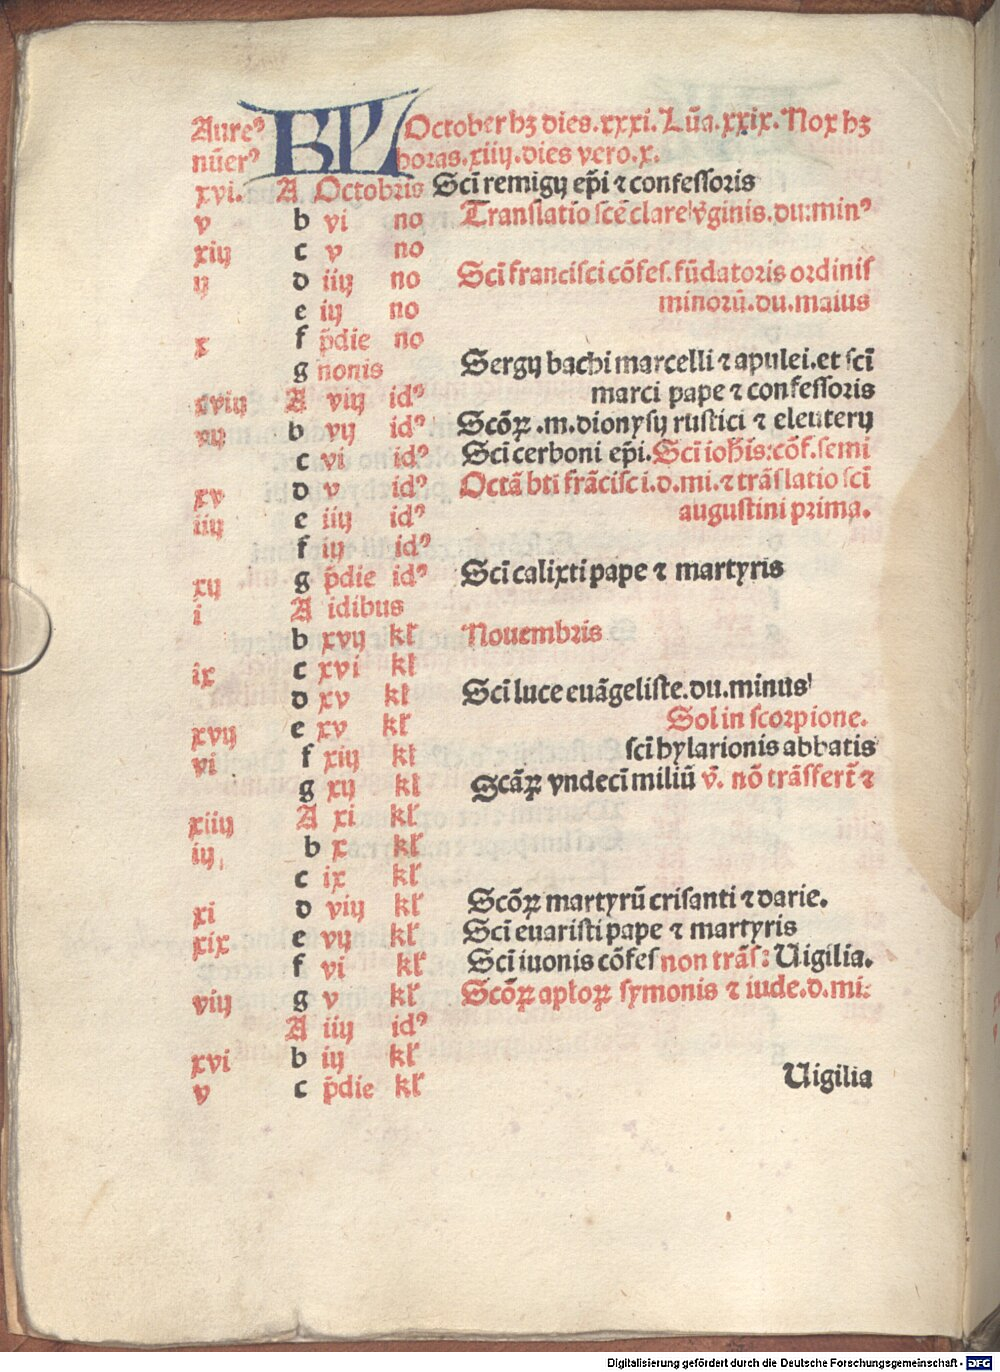 Aureꝰ KL October hꝫ dies.xxxi. Lūa.xxix. Nox hꝫ
nūerꝰ horas.xiiij.dies vero.x.
xvi. A Octobris Scī remigij ep̄i ⁊ confessoris
v b vi no Translatio scē clare v̄ginis.du:minꝰ
xiij c v no
ij d iiij no Scī francisci cōfes.fūdatoris ordinis
e iij no minorū.du.maius
x f p̄die no
g nonis Sergij bachi marcelli ⁊ apulei.et scī
xviij A viij idꝰ marci pape ⁊ confessoris
vij b vij idꝰ Scōꝝ.m.dionysij rustici ⁊ eleuterij
c vi idꝰ Scī cerboni ep̄i.Scī ioh̄is:cōf.semi
xv d v idꝰ Octā bti frācisci.d.mi.⁊ trāslatio scī
iiij e iiij idꝰ augustini prima.
f iij idꝰ
xij g p̄die idꝰ Scī calixti pape ⁊ martyris
i A idibus
b xvij kl̄ Nouembris
ix c xvi kl̄
d xv kl̄ Scī luce euāgeliste.du.minus
xvij e xv kl̄ Sol in scorpione.
vi f xiij kl̄ scī hylarionis abbatis
g xij kl̄ Scāꝝ vndecī miliū v̄. nō trāsfert̄ ⁊
xiiij A xi kl̄
iij b x kl̄
c ix kl̄
xi d viij kl̄ Scōꝝ martyrū crisanti ⁊ darie.
xix e vij kl̄ Scī euaristi pape ⁊ martyris
f vi kl̄ Scī iuonis cōfes non trās: Uigilia.
viij g v kl̄ Scōꝝ aptoꝝ symonis ⁊ iude.d.mi:
A iiij idꝰ
xvi b iij kl̄
v c p̄die kl̄ Uigilia
Digitalisierung gefördert durch die Deutsche Forschungsgemeinschaft - DFG